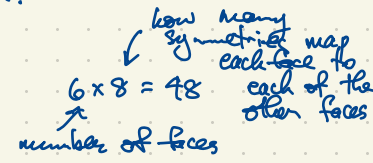 how many
symmetries map
each face to
each of the
other faces
6 × 8 = 48
number of faces